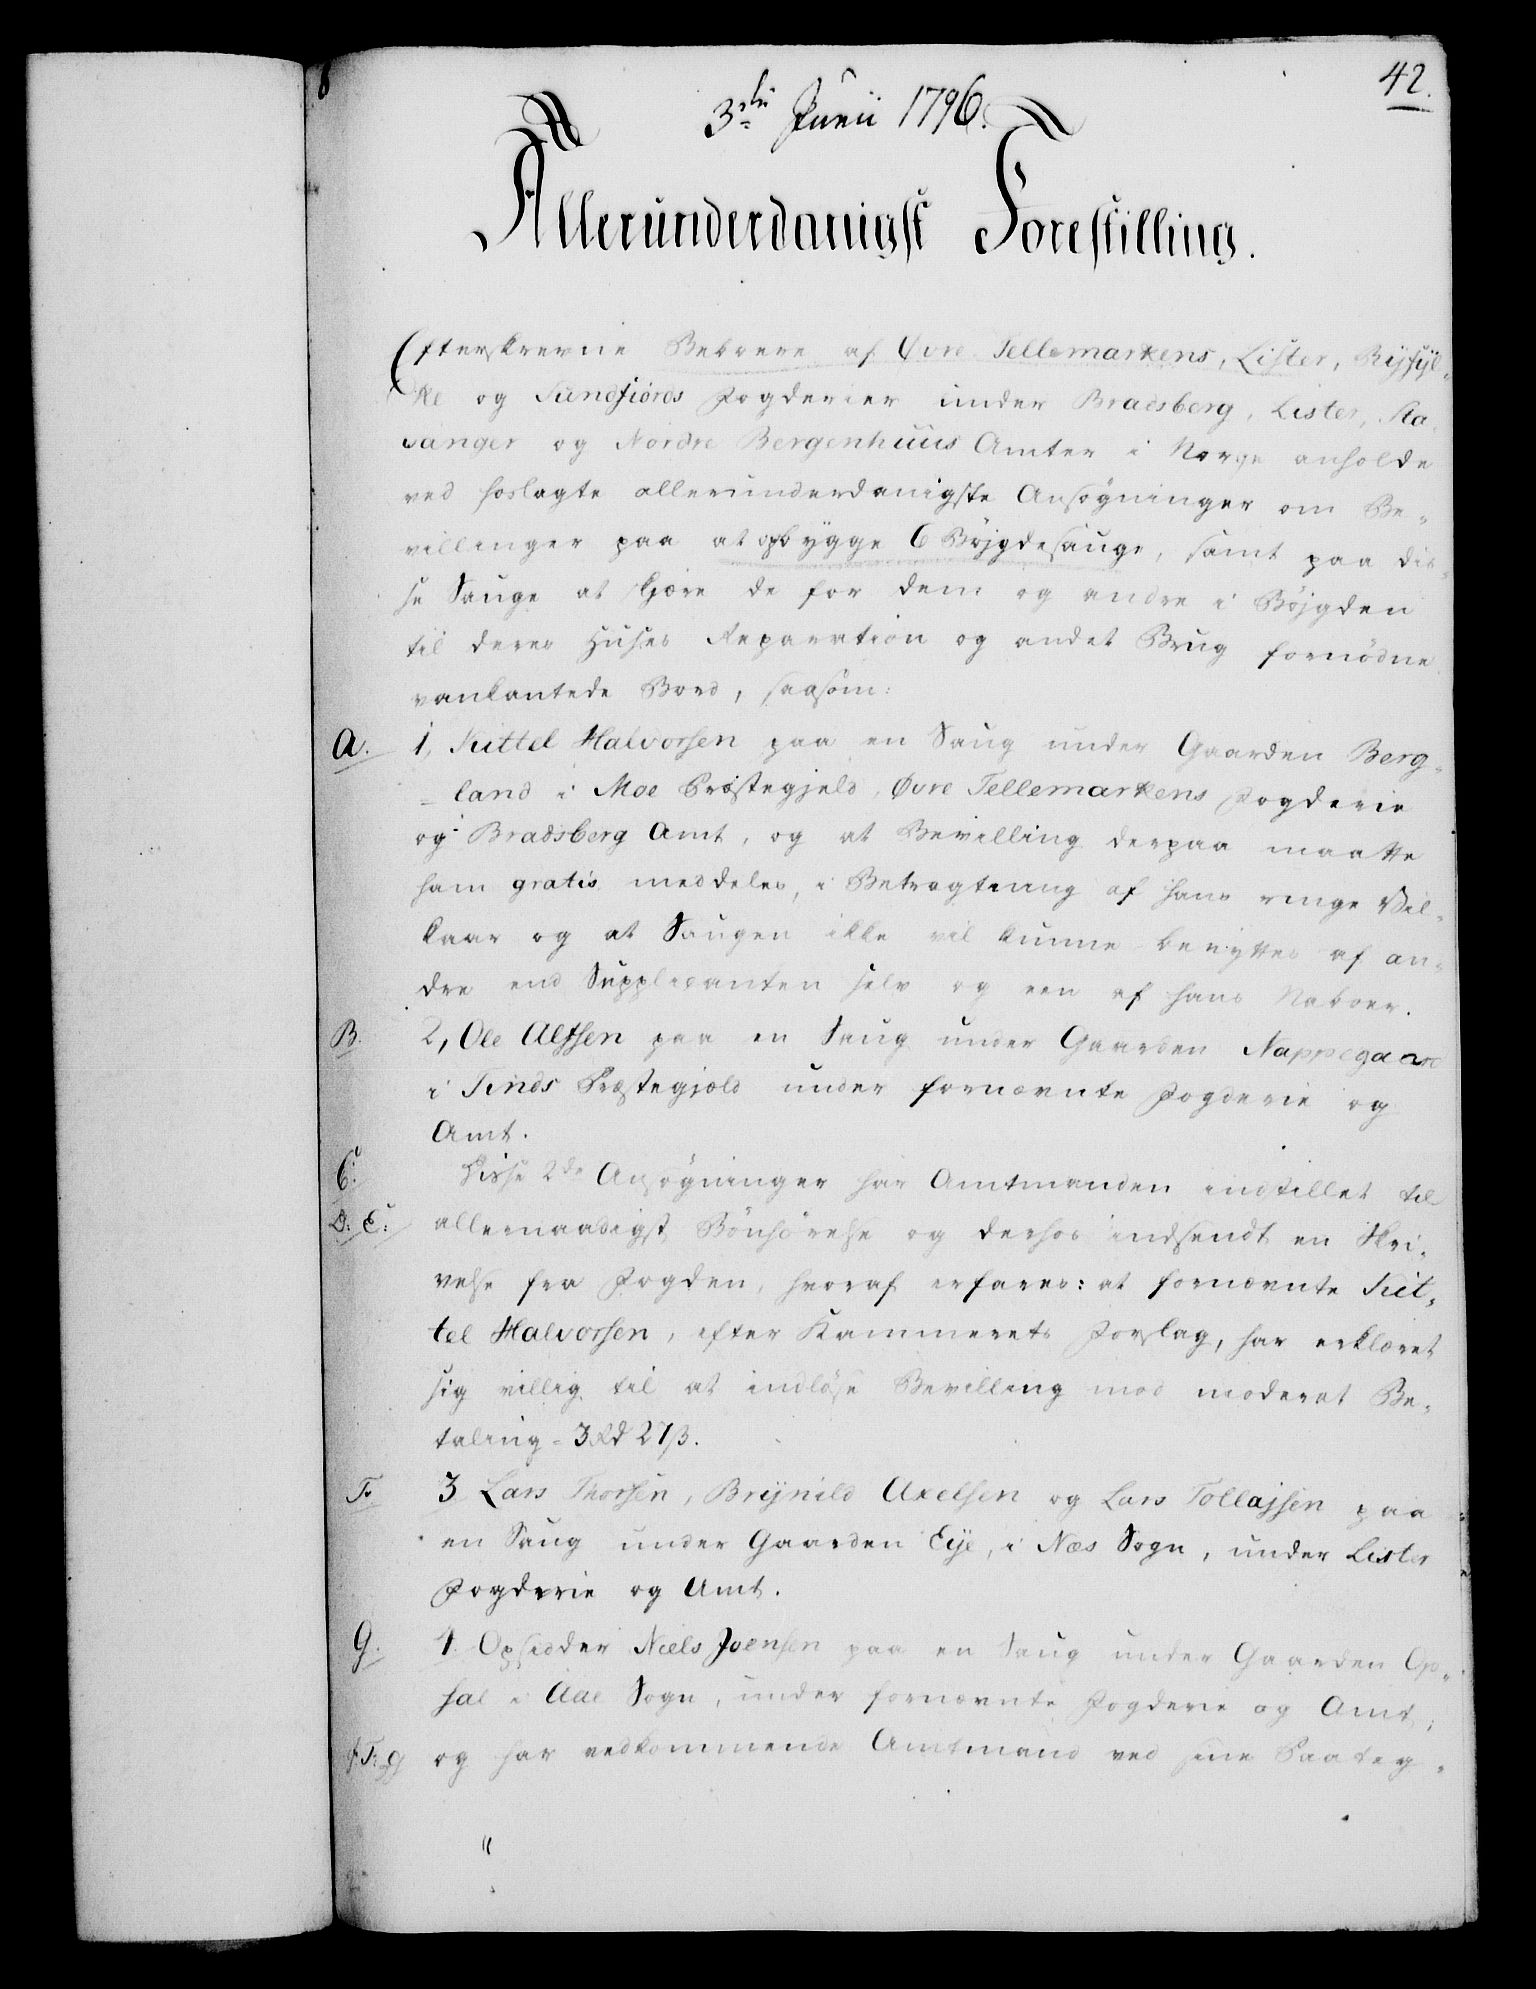 42.
3die Junii 1796.
Allerunderdanigst Forestilling.
Efterskrevne Beboere af Øvre Tellemarkens, Lister, Ryfyl-
ke og Sundfiords Fogderier under Bradsberg, Lister, Sta-
vanger og Nordre Bergenhuus Amter i Norge anholde
ved hoslagte allerunderdanigste Ansøgninger om Be-
villinger paa at opbygge 6 Bøjgdesauge, samt paa dis-
se Sauge at skjære de for dem og andre i Bøjgden
til deres Huses Reparation og andet Brug fornødne
vankantede Bord, saasom:
A. 1, Kittel Halvorsen paa en Saug under Gaarden Berg-
land i Moe Præstegjeld, Øvre Tellemarkens Fogderie
og Bradsberg Amt, og at Bevilling derpaa maatte
ham gratis meddeles, i Betragtning af hans ringe Vil-
kaar og at Saugen ikke vil kunne benyttes af an-
dre end Supplicanten selv og een af hans Naboer.
B. 2, Ole Alfsen paa en Saug under Gaarden Nappegaard
i Tinds Præstegjæld under fornævnte Fogderie og
Amt.
C: Disse 2de Ansøgninger har Amtmanden indstillet til
D: E: allernaadigst Bønhørelse og derhos indsendt en Skri-
velse fra Fogden, hvoraf erfares: at fornævnte Kit-
tel Halvorsen, efter Kammerets Forslag, har erklæret
sig villig til at indløse Bevilling mod moderat Be-
taling = 3 Rd 27 ß.
F. 3 Lars Thorsen, Brynild Axelsen og Lars Tollajsen paa
en Saug under Gaarden Eye, i Næs Sogn, under Lister
Fogderie og Amt.
G. 4. Opsidder Niels Joensen paa en Saug under Gaarden Op-
sal i Aae Sogn, under fornævnte Fogderie og Amt;
F: G og har vedkommende Amtmand ved sine Paateg-